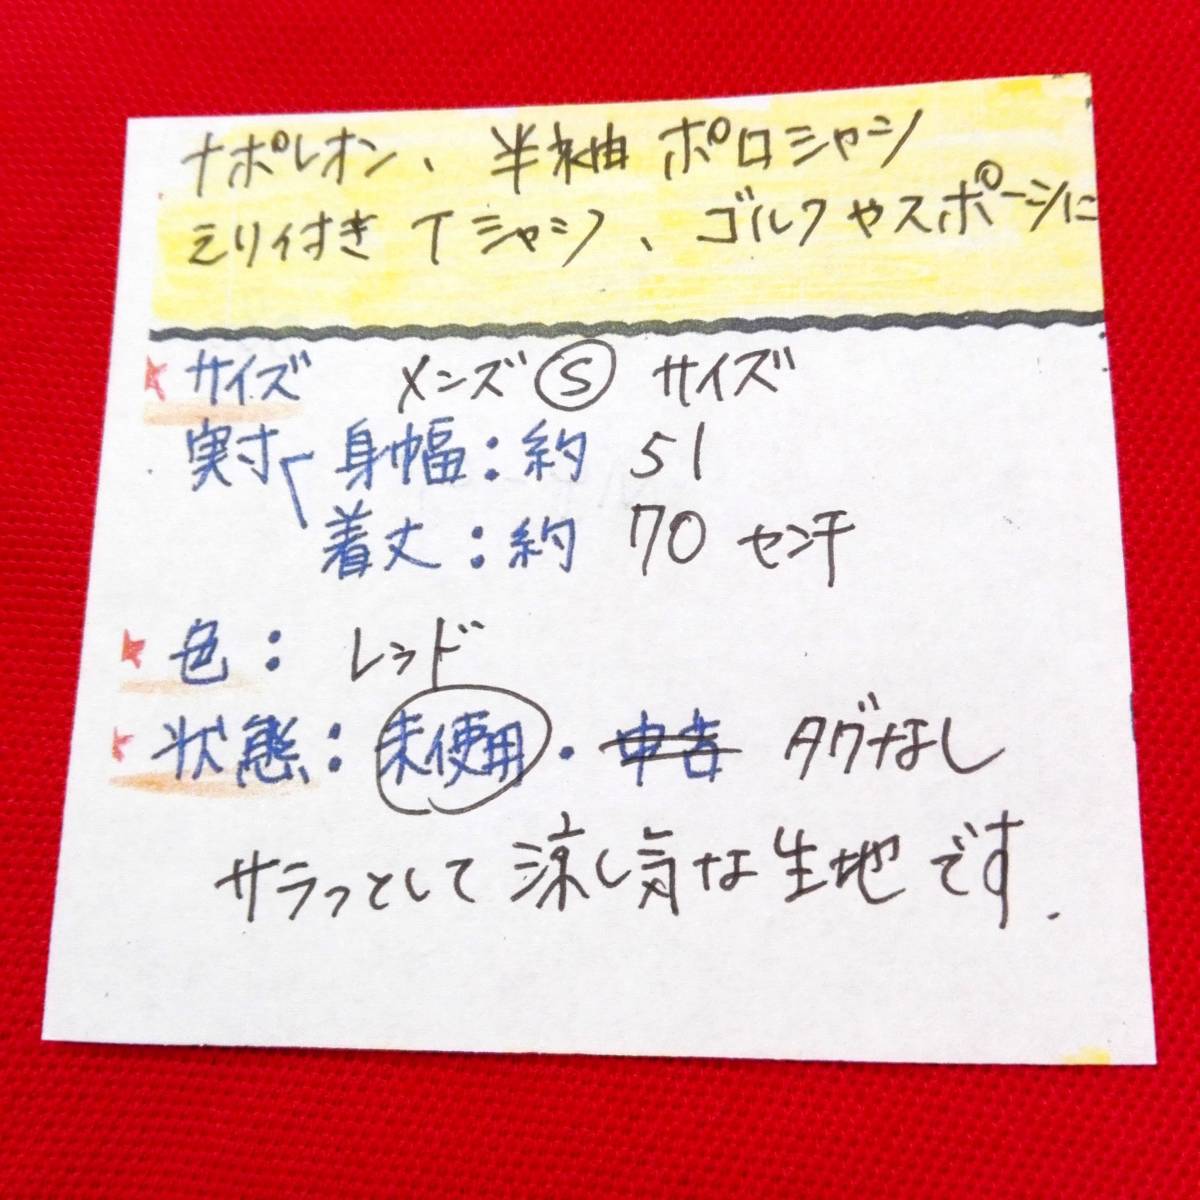 ナポレオン、半袖 ポロシャツ
えり付き Tシャツ、ゴルフやスポーツに
★サイズ メンズ Ⓢ サイズ
実寸 身幅:約 51
着丈:約 70 センチ
★色: レッド
★状態:未使用・中古 タグなし
サラっとして涼し気な生地です.